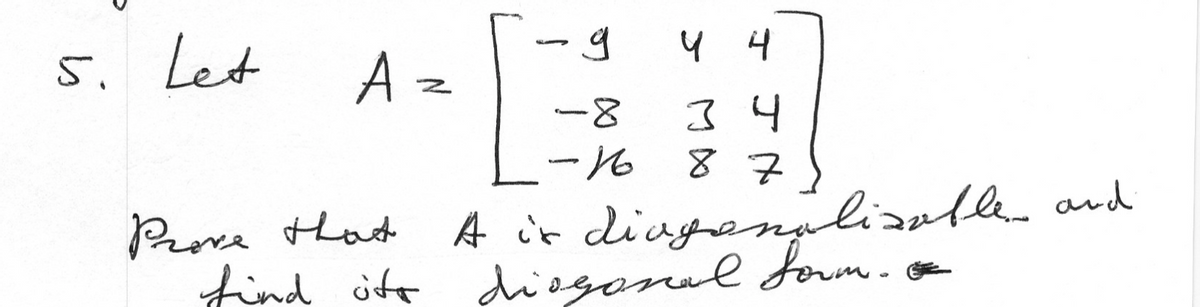 5. Let A = [ -9 4 4
-8 3 4
-16 8 7 ]
Prove that A is diagonalizable and
find its diagonal form.